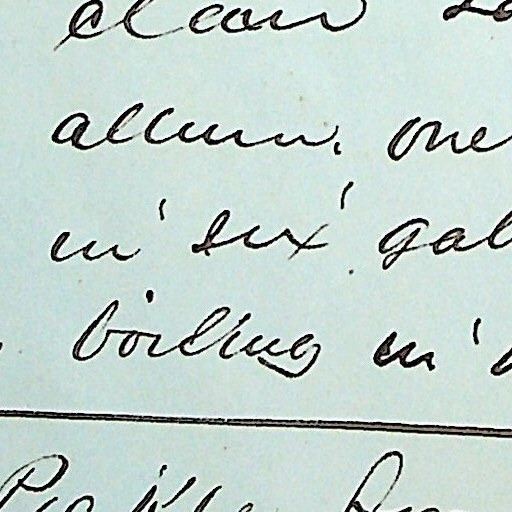 clean
allum. one
in six gal
boiling in
Pickle